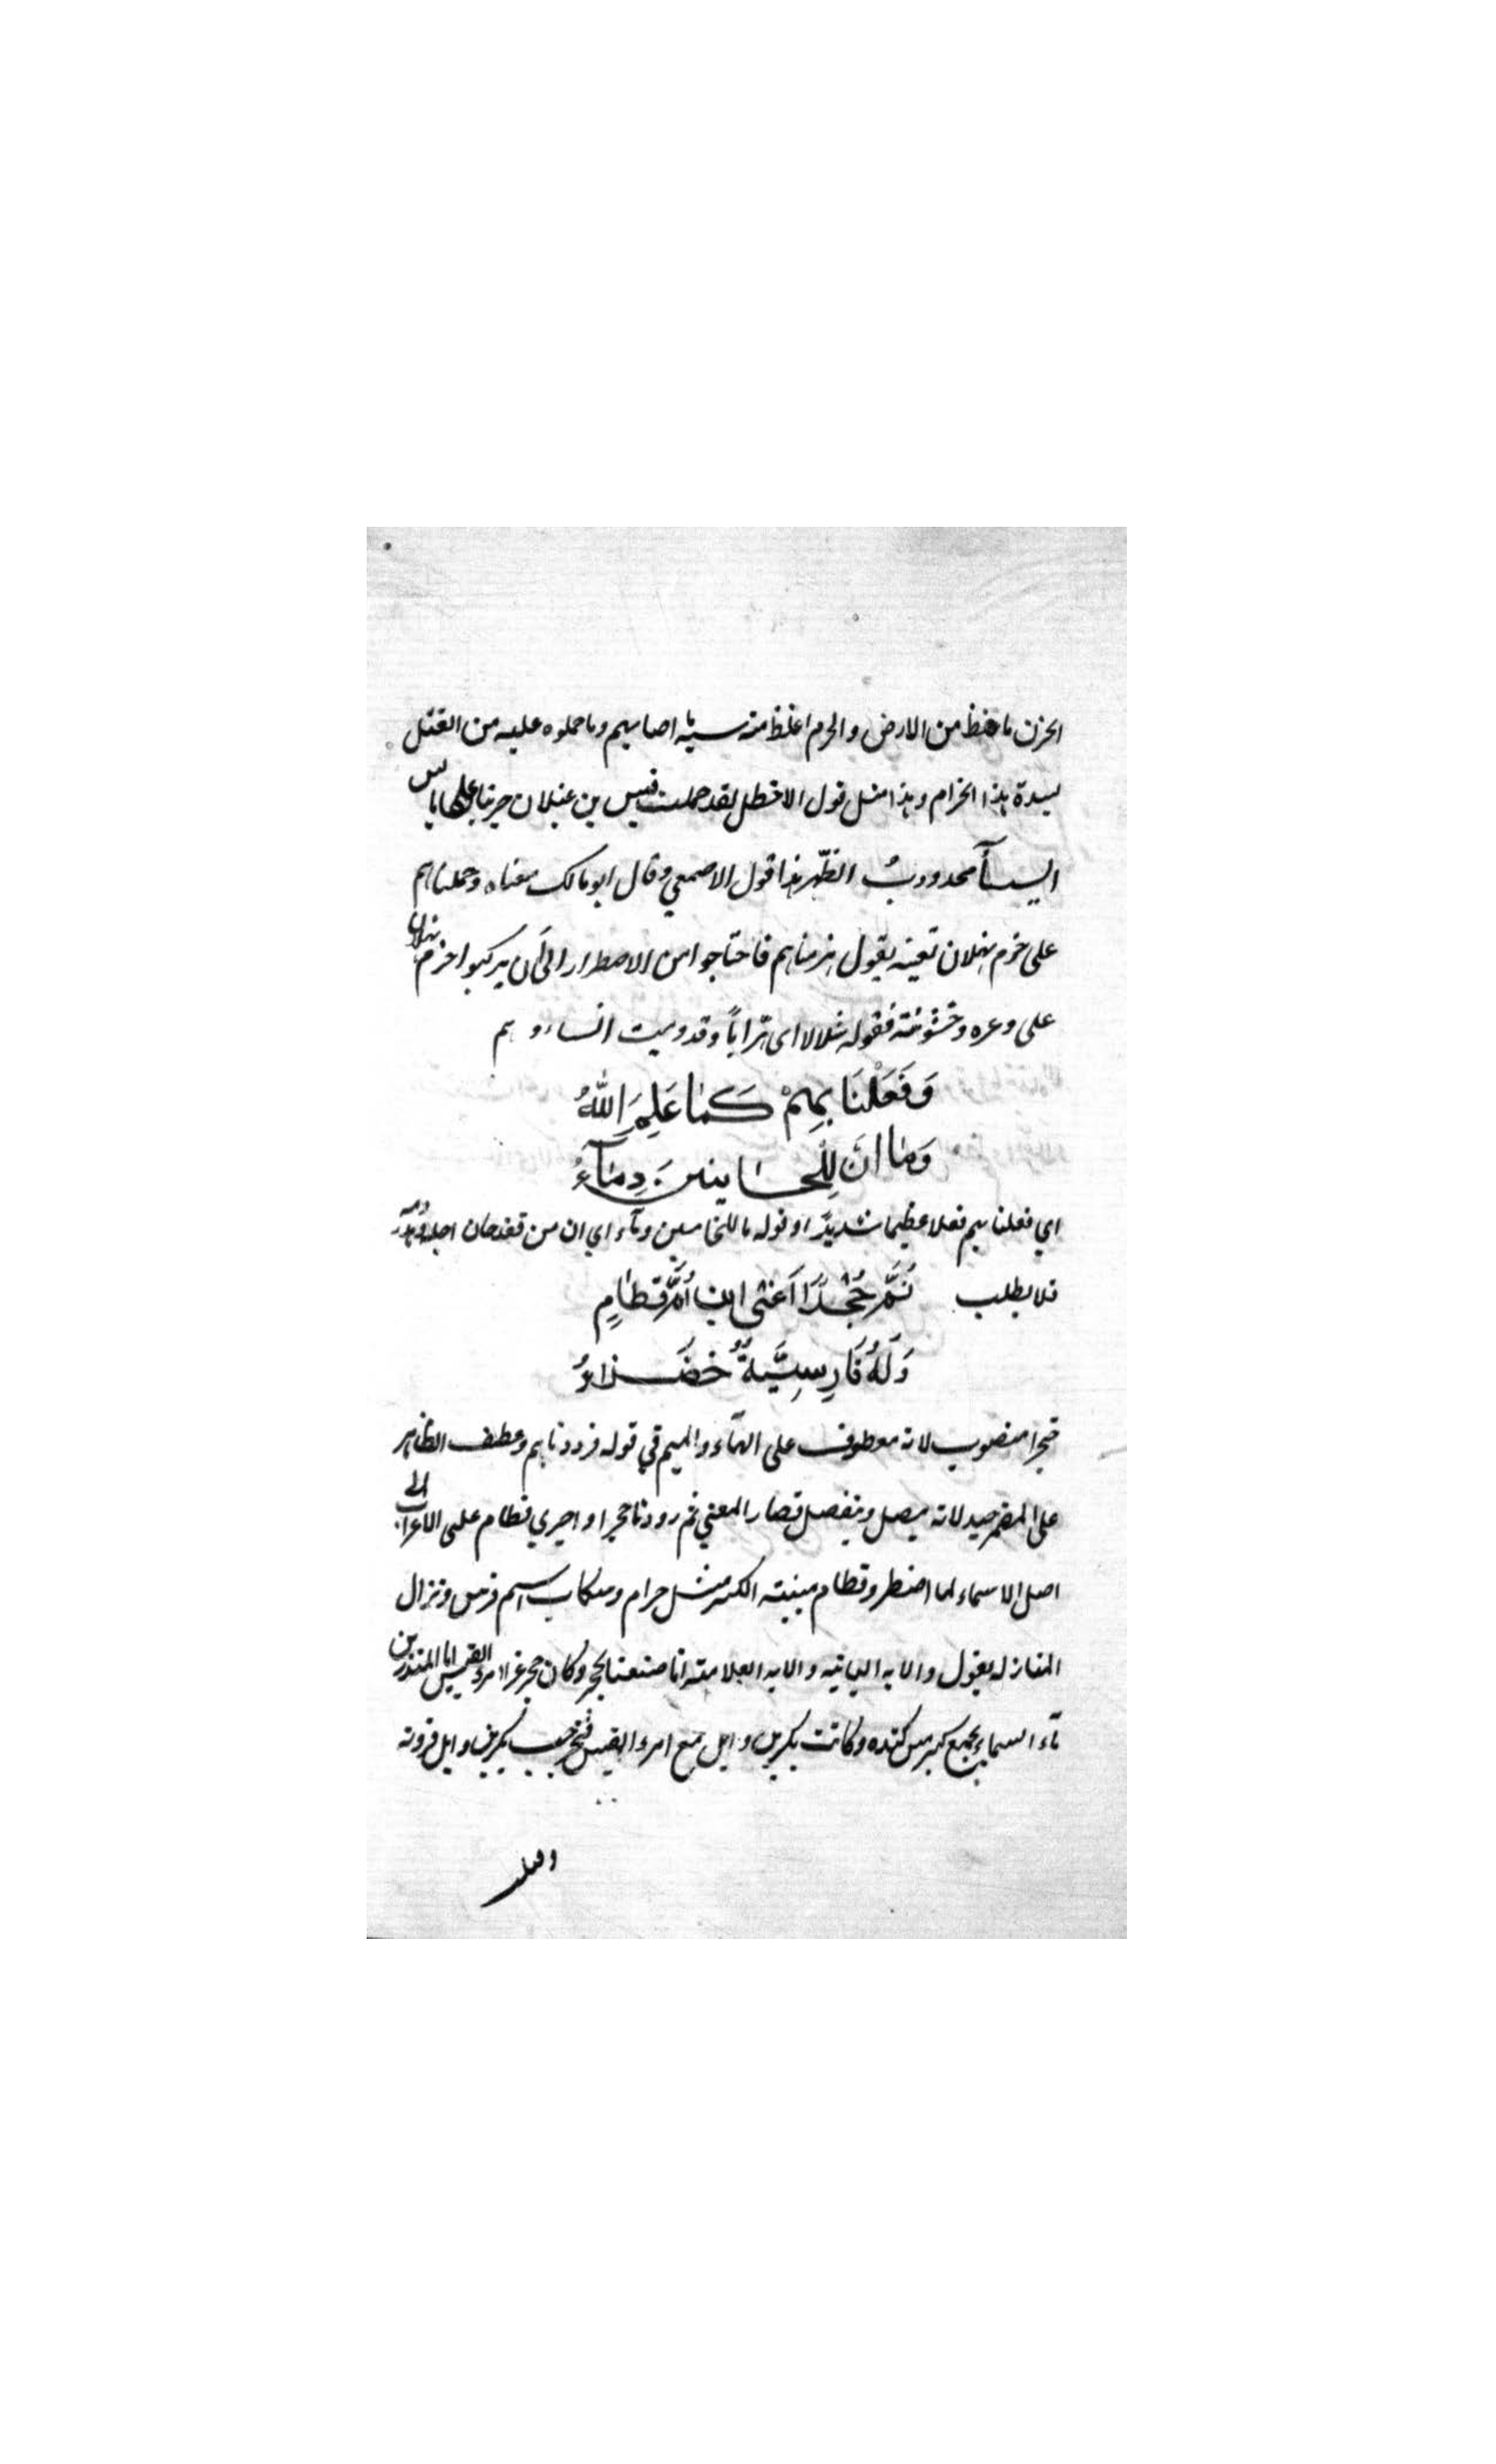 الحزن ما غلظ من الارض والحزم اغلظ منه سببه ما اصابهم وما حملوه عليه من القتل
لشدة هذا الحزام وهذا مثل قول الاخطل لقد حملت قيس بن عيلان حربنا على يابس
السيسآ محدودبُ الظّهر هذا قول الاصمعي وقال ابو مالك معناه وحملناهم
على حزم ثهلان تعينه يقول هزمناهم فاحتاجوا من الاضطرار الى اَن يركبوا حزم ثهلان
على وعره وخشونته فقوله شلالا اى هرّاباً وقد دميت انساءوهم
وَفَعَلْنَا بِهِمْ كَمَا عَلِمَ اللّٰهُ
وَمَا اَنَ لِلْحَاينينَ دِمَآءُ
اي فعلنا بهم فعلا عظيما شديدًا وقوله ما للخاينين دمآء اي ان من قد حان اجله دمه
فلا يطلب ثُمَّ حُجْرًا اَعْنى ابنَ اُمِّ قَطَامٍ
وَلَهُ فَارِسِيَّةٌ خضَراءُ
حجرا منصوب لانه معطوف على الهآء والميم في قوله فرددناهم وعطف الظاهر
على المضمر جيد لانه يتصل وينفصل فصار المعني ثم رددنا حجرا واجري قطام على الاعراب الى
اصل الاسماء لما اضطر وقطام مبنيته الكسر مثل حرام وسكاب اسم فرس ونزال
المنازله يقول والايه الثانيه والايه العلامته انا صنعنا بحجر وكان حجر غزا امرء القيس ابا المنذر بن
مآء السماء بجمع كبير من كنده وكانت بكر بن وايل مع امرء القيس فخرجت بكر بن وايل فردته